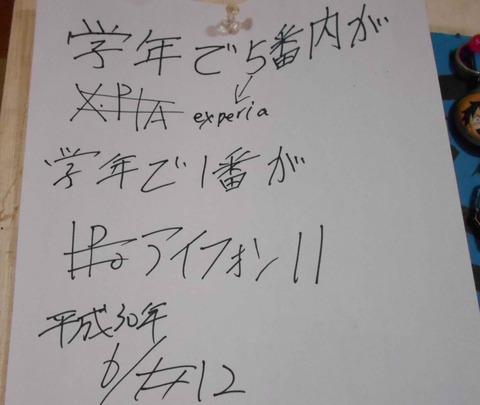 学年で5番内が
X・PIA experia
学年で1番が
アイフォン11
平成30年
6/12